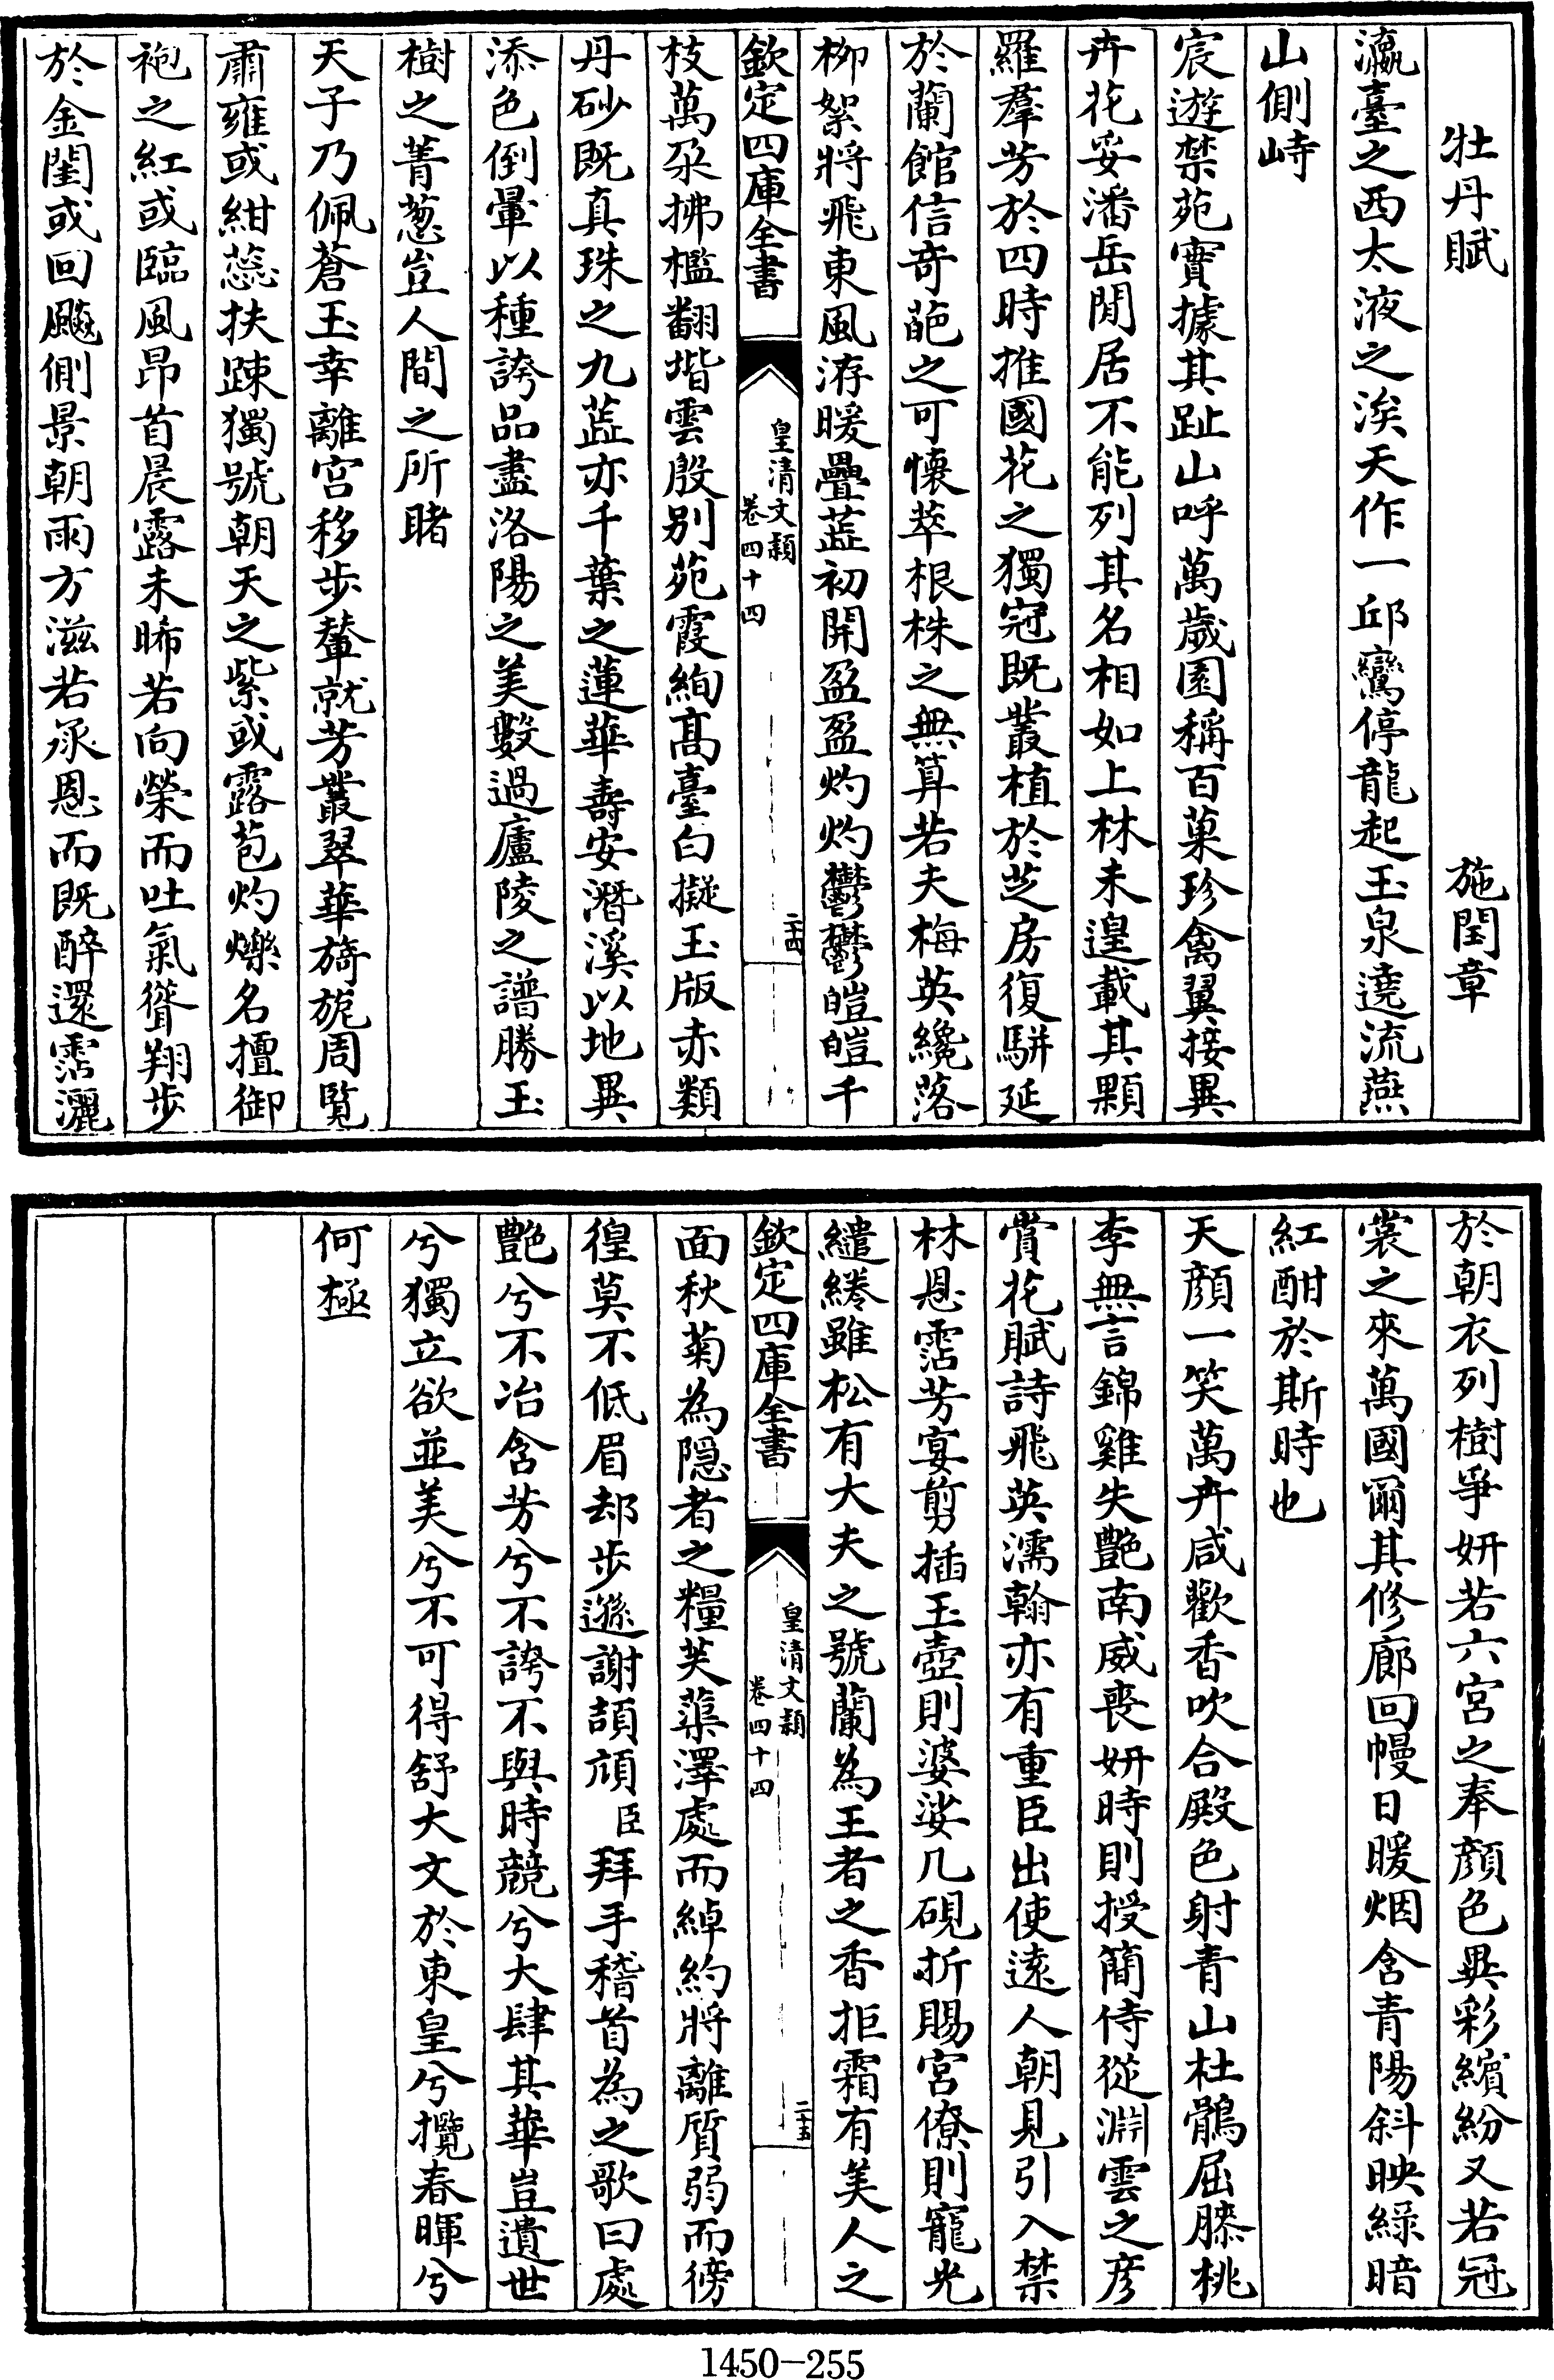 牡丹賦 施閏章
瀛臺之西太液之涘天作一邱鸞停龍起玉泉遶流燕
山側峙
宸遊禁苑實據其趾山呼萬歲園稱百菓珍禽翼接異
卉花妥潘岳閒居不能列其名相如上林未遑載其顆
羅羣芳於四時推國花之獨冠既叢植於芝房復駢延
於蘭館信奇葩之可懷萃根株之無算若夫梅英纔落
柳絮將飛東風洊暖疊蕋初開盈盈灼灼鬱鬱皚皚千
欽定四庫全書
皇清文穎
卷四十四
二十四
枝萬朶拂檻翻堦雲殷别苑霞絢髙臺白擬玉版赤類
丹砂既真珠之九蕋亦千葉之蓮華壽安潛溪以地異
添色倒暈以種誇品盡洛陽之美數過廬陵之譜勝玉
樹之菁葱豈人間之所睹
天子乃佩蒼玉幸離宫移步輦就芳叢翠華旖旎周覧
肅雍或紺蕊扶踈獨號朝天之紫或露苞灼爍名擅御
袍之紅或臨風昂首晨露未晞若向榮而吐氣聳翔步
於金閨或回飈側景朝雨方滋若承恩而既醉還霑灑
於朝衣列樹爭妍若六宮之奉顔色異彩繽紛又若冠
裳之來萬國爾其修廊回幔日暖烟含青陽斜映緑暗
紅酣於斯時也
天顔一笑萬卉咸歡香吹合殿色射青山杜鵑屈膝桃
李無言錦雞失艷南威喪妍時則授簡侍從淵雲之彦
賞花賦詩飛英濡翰亦有重臣出使逺人朝見引入禁
林恩霑芳宴剪插玉壺則婆娑几硯折賜宮僚則寵光
繾綣雖松有大夫之號蘭為王者之香拒霜有美人之
欽定四庫全書
皇清文穎
卷四十四
二十五
面秋菊為隠者之糧芙蕖澤處而綽約將離質弱而徬
徨莫不低眉却步遜謝頡頏臣拜手稽首為之歌曰處
艷兮不冶含芳兮不誇不與時競兮大肆其華豈遺世
兮獨立欲並美兮不可得舒大文於東皇兮攬春暉兮
何極
1450-255